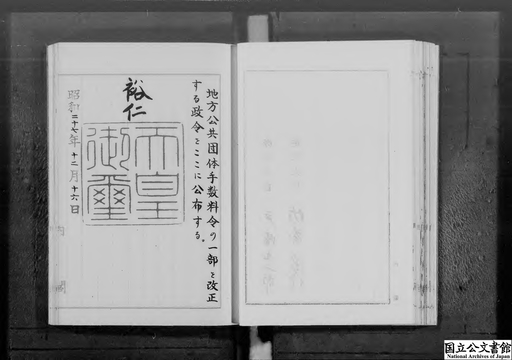 地方公共団体手数料令の一部を改正
する政令をここに公布する。
裕仁
天皇
御璽
昭和二十七年十二月十六日
内閣
国立公文書館
National Archives of Japan